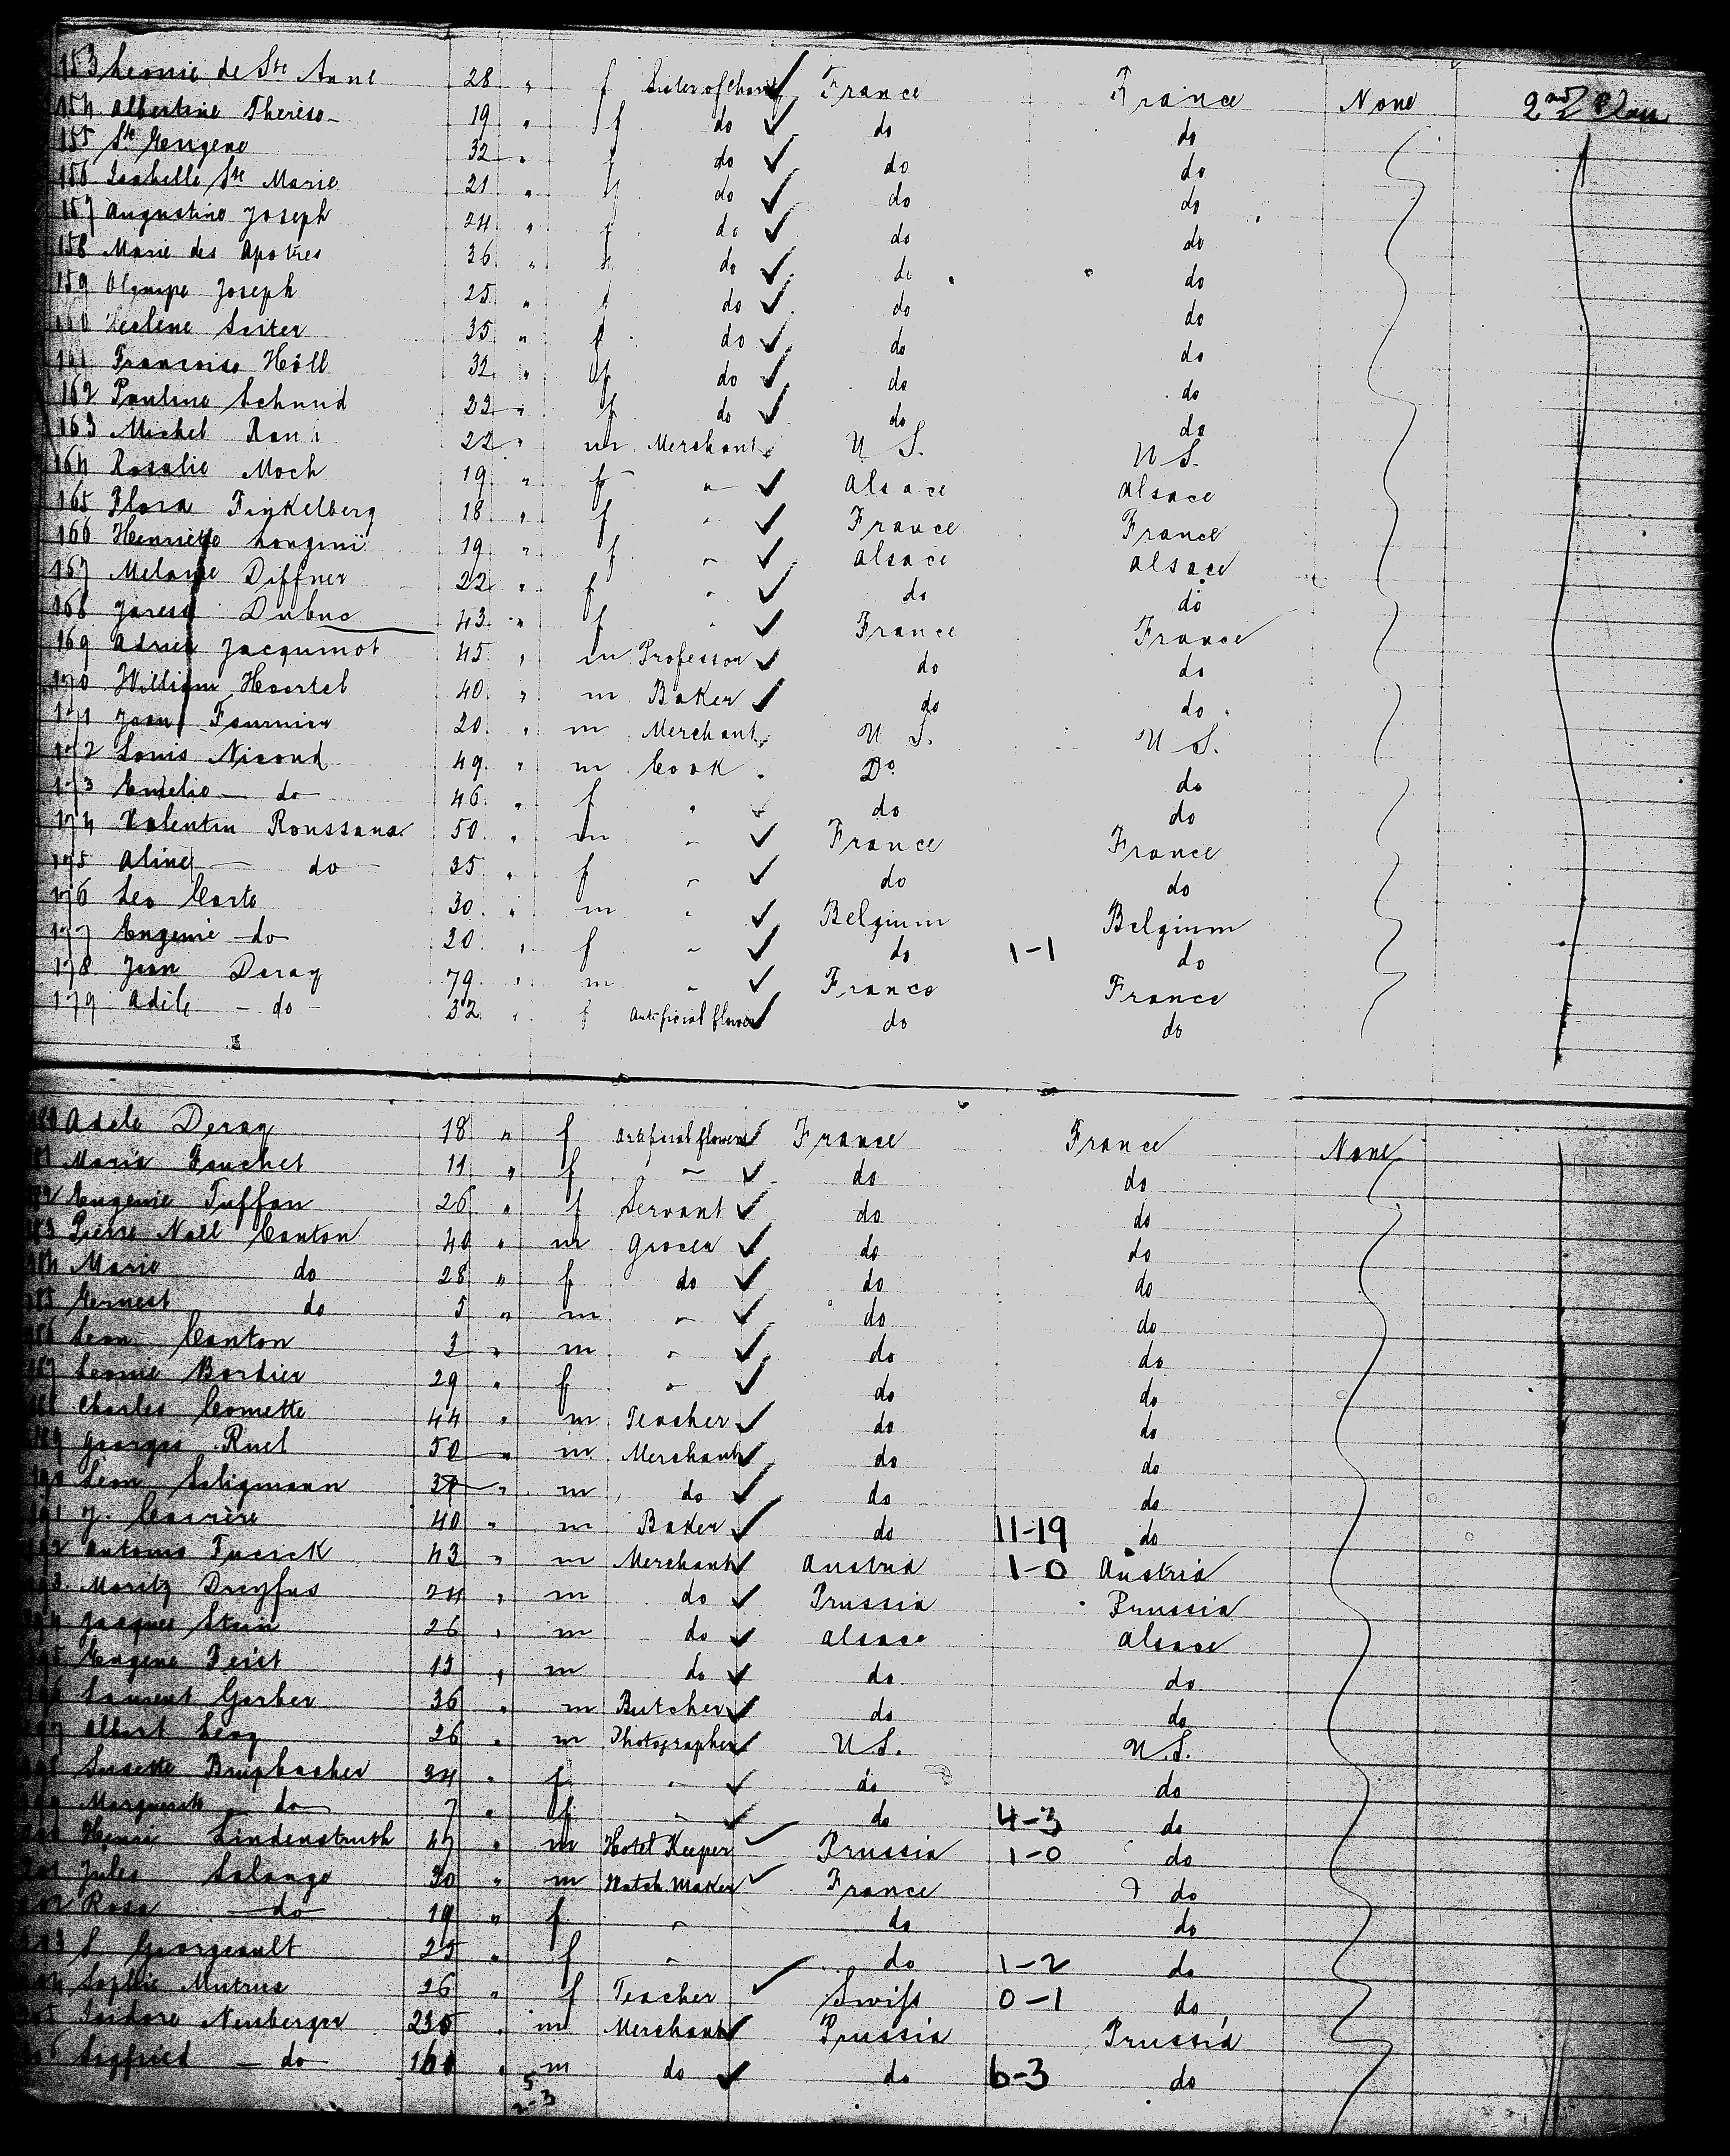 153 Leonie de Ste Anne 28 " f Sister of Charit ✓ France France None 2nd Class
154 Albertine Therese 19 " f do ✓ do do
155 Ste Eugene 32 " f do ✓ do do
156 Isabelle Ste Marie 21 " f do ✓ do do
157 Augustine Joseph 24 " f do ✓ do do
158 Marie des Apotres 36 " f do ✓ do do
159 Olympe Joseph 25 " f do ✓ do do
160 Sister 35 " f do ✓ do do
161 Francoise Höll 32 " f do ✓ do do
162 Pauline Schmid 22 " f do ✓ do do
163 Michel 22 " m Merchant U S. U S.
164 Rosalie Moch 19 " f " ✓ Alsace Alsace
165 Flora Finkelberg 18 " f " ✓ France France
166 Henriette 19 " f " ✓ Alsace Alsace
167 Melanie Diffner 22 " f " ✓ do do
168 Dubuc 43 " f " ✓ France France
169 Adrien Jacquinot 45 " m Professor ✓ do do
170 William Hoertel 40 " m Baker ✓ do do
171 Jean Fournier 20 " m Merchant U S. U S.
172 Louis Nicoud 49 " m Cook Do do
173 do 46 " f " do do
174 Valentin 50 " m " ✓ France France
175 Aline do 35 " f " ✓ do do
176 Leo 30 " m " ✓ Belgium Belgium
177 Eugenie do 20 " f " ✓ do 1-1 do
178 Jean Deray 79 " m " ✓ France France
179 Adele do 32 " f Artificial flower ✓ do do
180 Adele Deray 18 " f Artificial flower ✓ France France None
Maria Fouchet 11 " f " ✓ do do
Eugenie Tuffon 26 " f Servant ✓ do do
Pierre Noel Canton 40 " m Grocer ✓ do do
Marie do 28 " f do ✓ do do
Ernest do 5 " m " ✓ do do
Leon Canton 3 " m " ✓ do do
Leonie Bordier 29 " f " ✓ do do
Charles Comette 44 " m Teacher ✓ do do
Georges Ruel 50 " m Merchant ✓ do do
Leon Seligmann " m do ✓ do do
J. Carrère 40 " m Baker ✓ do 11-19 do
Antonio 43 " m Merchant ✓ Austria 1-0 Austria
Moritz Dreyfus 24 " m do ✓ Prussia Prussia
Jacques Stein 26 " m do ✓ Alsace Alsace
Eugene Feist " m do ✓ do do
Laurent Gerber 36 " m Butcher ✓ do do
Albert Levy 26 " m Photographer ✓ U S. U.S.
Susette Brugbacher 34 " f " ✓ do do
Marguerite do 7 " f " ✓ do 4-3 do
Henri Lindenstruth 47 " m Hotel Keeper ✓ Prussia 1-0 do
Jules Salange 30 " m Watch Maker ✓ France do
Rosa do 19 " f " do do
S Georgeault 25 " f " do 1-2 do
Sophie 26 " f Teacher ✓ Swiss 0-1 do
Isidore Neuberger " m Merchant ✓ Prussia Prussia
Sigfried do " m do ✓ do 6-3 do